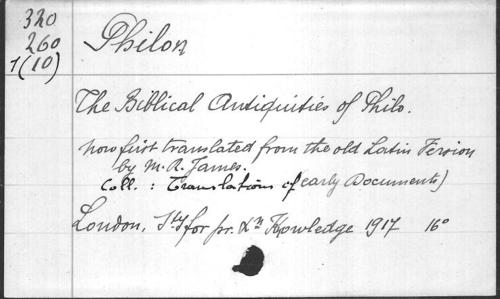 320
260
7(10)
Philon
The Biblical Antiquities of Philo.
now first translated from the old Latin Version
by M. R. James.
Coll. : Translations of early Documents)
London, Sty for pr. Xn Knowledge 1917 16°